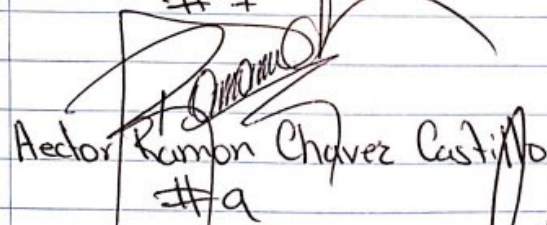 Hector Ramon Chavez Castillo
#9